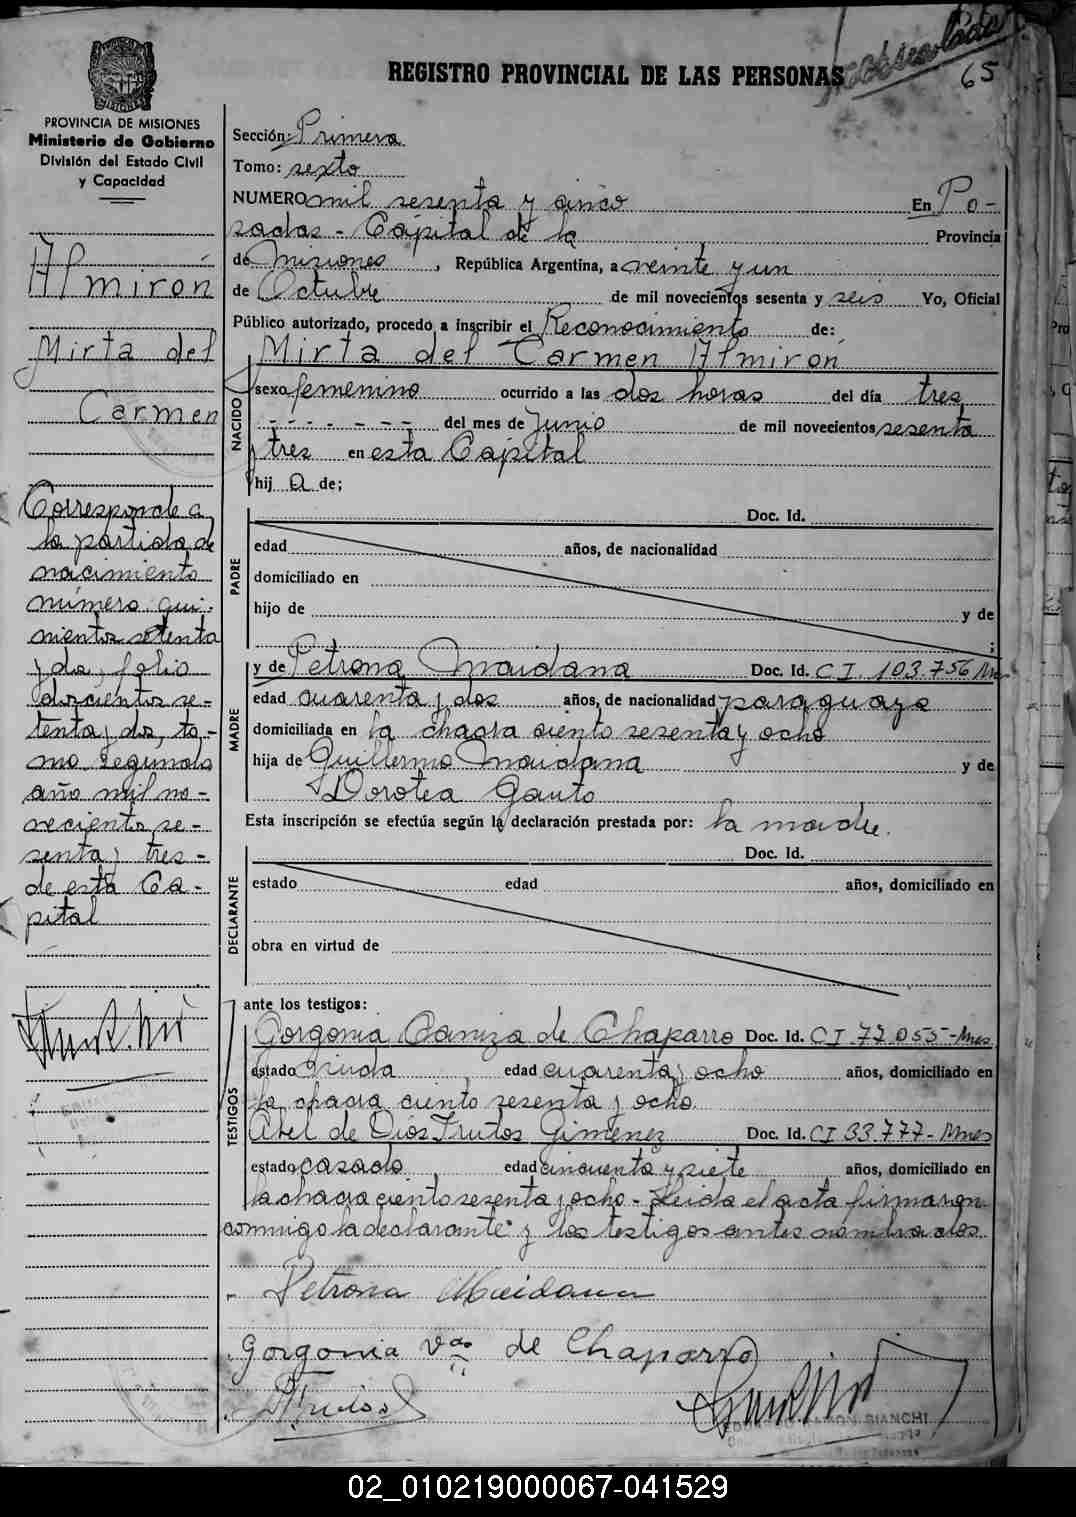 65
REGISTRO PROVINCIAL DE LAS PERSONAS
PROVINCIA DE MISIONES
Ministerio de Gobierno
División del Estado Civil
y Capacidad
Almirón
Mirta del
Carmen
Corresponde a
la partida de
nacimiento
número qui-
nientos setenta
y dos, folio
doscientos se-
tenta y dos, to-
mo segundo
año mil no-
vecientos se-
senta y tres -
de esta Ca-
pital
Sección: Primera
Tomo: sexto
NUMERO mil sesenta y cinco En Po-
sadas - Capital de la Provincia
de Misiones, República Argentina, a veinte y un
de Octubre de mil novecientos sesenta y seis Yo, Oficial
Público autorizado, procedo a inscribir el Reconocimiento de:
Mirta del Carmen Almirón
NACIDO
sexo femenino ocurrido a las dos horas del día tres
- - - - - - - del mes de Junio de mil novecientos sesenta
y tres en esta Capital
hij a de;
PADRE
Doc. Id.
edad años, de nacionalidad
domiciliado en
hijo de y de
;
MADRE
y de Petrona Maidana Doc. Id. C I. 103.756 Mnes
edad cuarenta y dos años, de nacionalidad paraguaya
domiciliada en la chacra ciento sesenta y ocho
hija de Guillermo Maidana y de
Dorotea Gauto
Esta inscripción se efectúa según la declaración prestada por: la madre.
DECLARANTE
Doc. Id.
estado edad años, domiciliado en
obra en virtud de
ante los testigos:
TESTIGOS
Gorgonia Caniza de Chaparro Doc. Id. C I. 77.055 - Mnes
estado viuda edad cuarenta y ocho años, domiciliado en
la chacra ciento sesenta y ocho.
Abel de Dios Frutos Gimenez Doc. Id. C I 33.777 - Mnes
estado casado edad cincuenta y siete años, domiciliado en
la chacra ciento sesenta y ocho - Leída el acta firmaron
conmigo la declarante y los testigos antes nombrados
Petrona Maidana
Gorgonia vda de Chaparro
RAMON BIANCHI
02_010219000067-041529